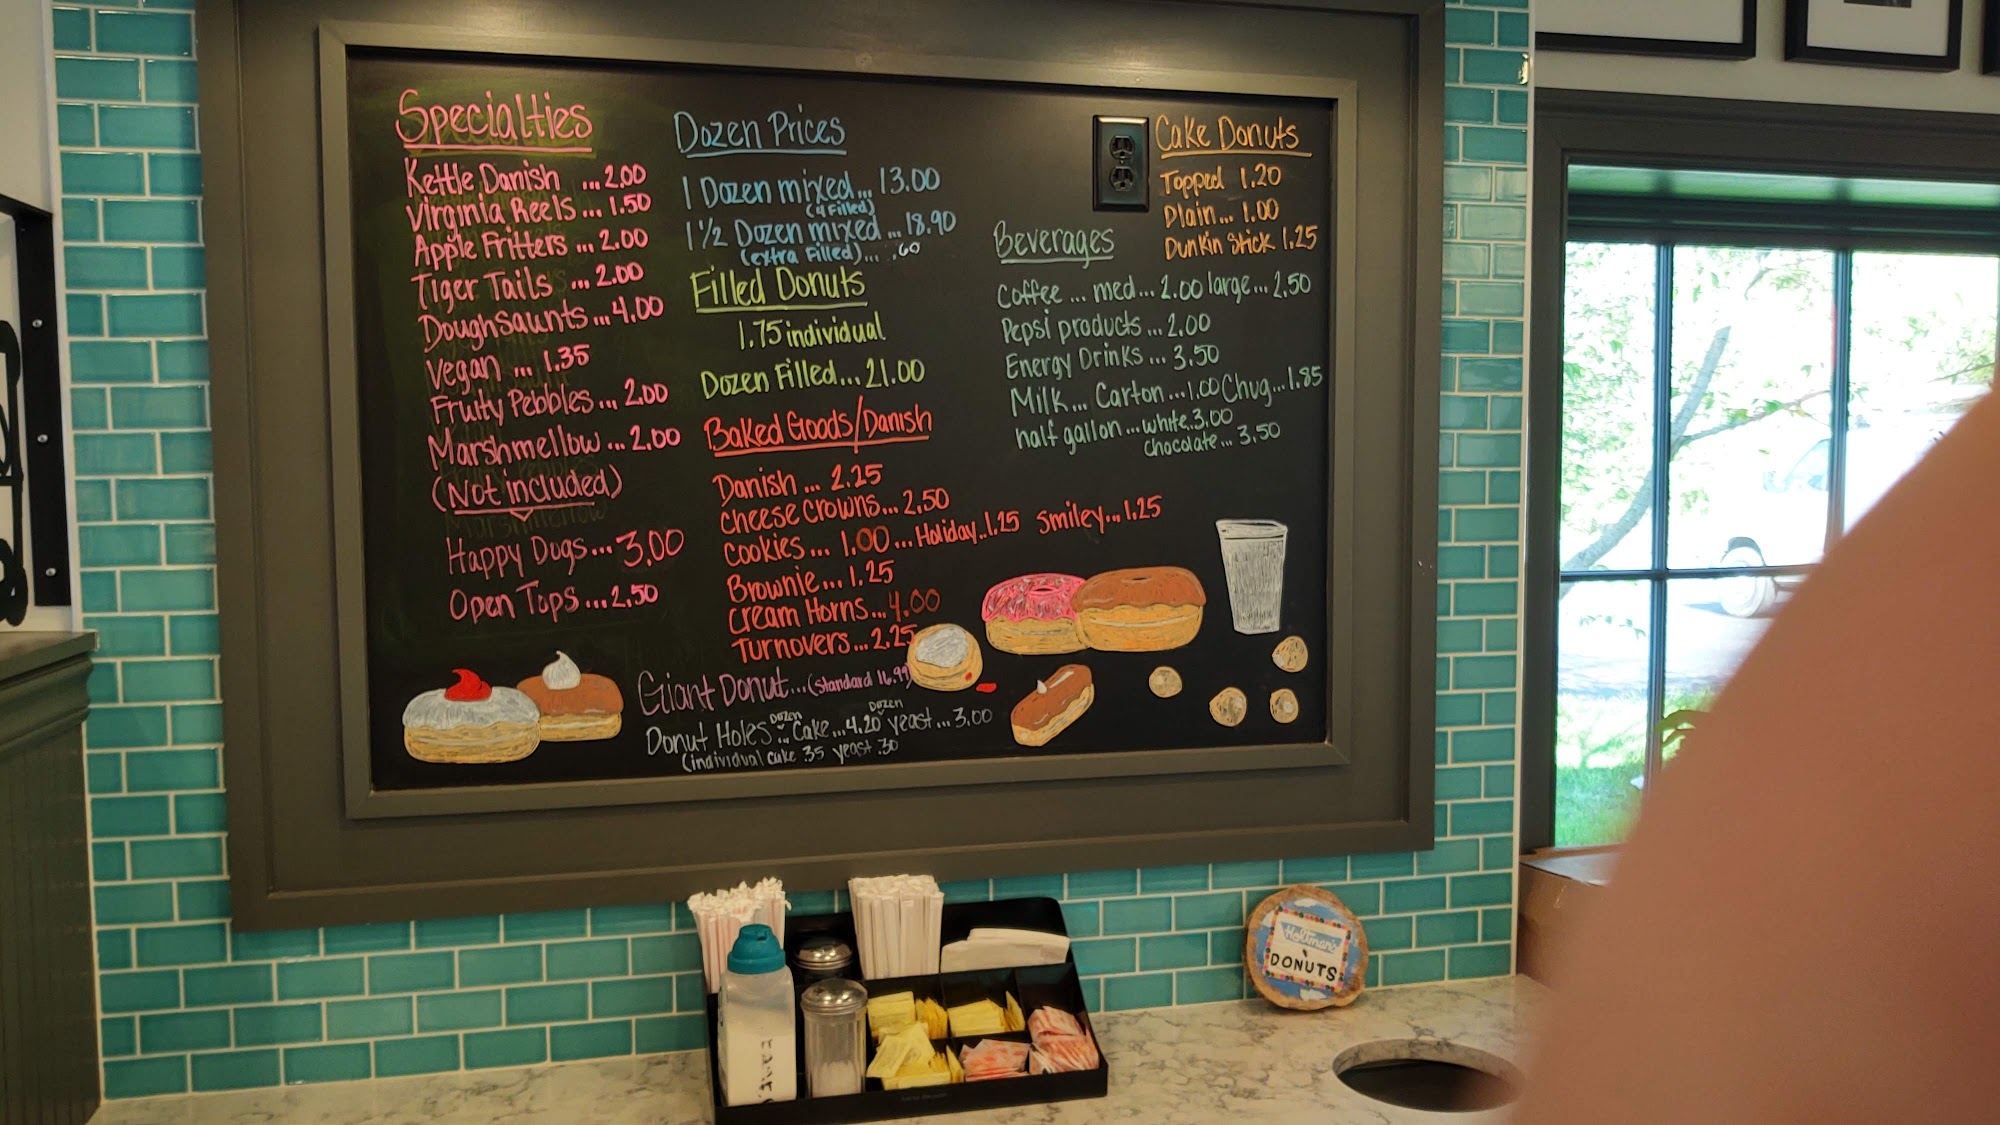 Specialties
Kettle Danish ...2.00
Virginia Reels...1.50
Apple Fritters ...2.00
Tiger Tails ...2.00
Doughsaunts...4.00
Vegan ... 1.35
Fruity Pebbles...2.00
Marshmellow...2.00
(Not included)
Happy Dogs...3.00
Open Tops...2.50
Dozen Prices
1 Dozen mixed...13.00
(4 Filled)
1 1/2 Dozen mixed...18.90
(extra Filled)... .60
Filled Donuts
1.75 individual
Dozen Filled...21.00
Baked Goods/Danish
Danish...2.25
Cheese Crowns...2.50
Cookies... 1.00...Holiday..1.25 Smiley...1.25
Brownie...1.25
Cream Horns...4.00
Turnovers...2.25
Giant Donut...(standard 16.99)
Donut Holes Dozen ... Cake...4.20 Dozen yeast...3.00
(individual cake .35 yeast .30
Beverages
Coffee ... med...2.00 large...2.50
Pepsi products...2.00
Energy Drinks...3.50
Milk... Carton...1.00 Chug...1.85
half gallon...white.3.00
Chocolate...3.50
Cake Donuts
Topped 1.20
Plain...1.00
Dunkin Stick 1.25
Holtman's
DONUTS